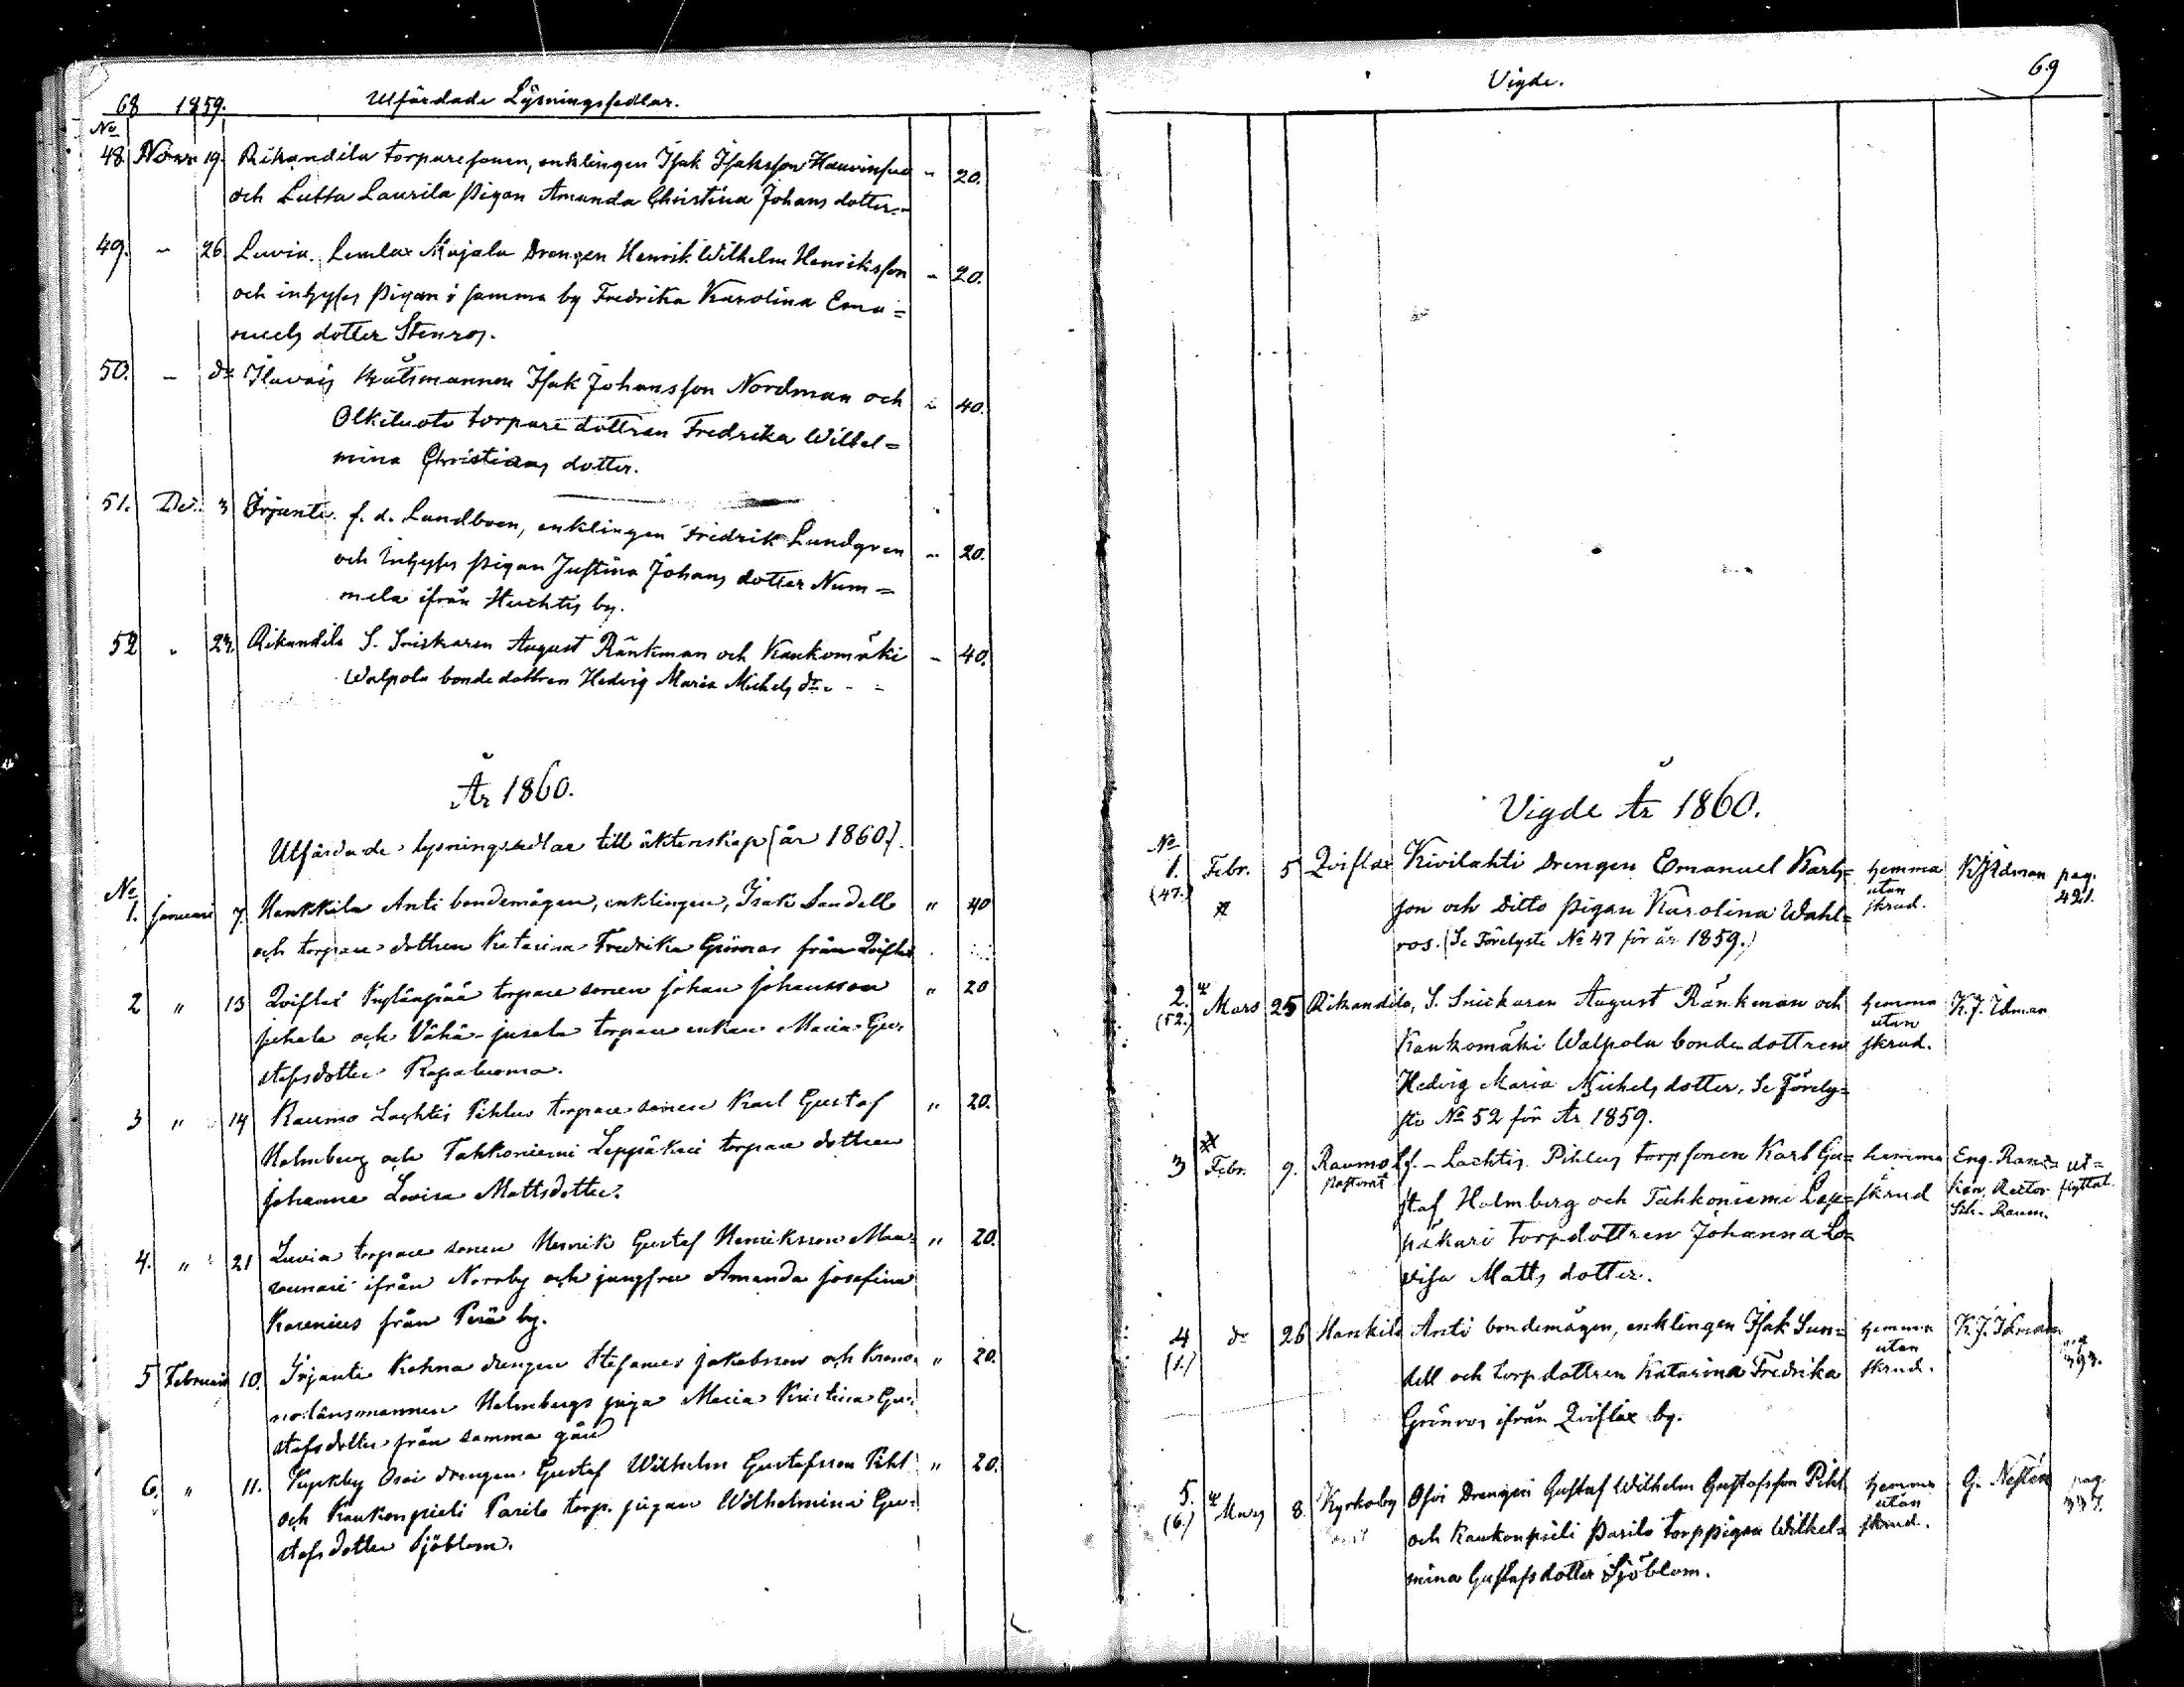 68 1859. Utfärdade Lysningssedlar.
No
48. Novr 19. Rikandila torparesonen, enklingen Isak Isaksson " 20.
och Lutta Laurila pigan Amanda Christina Johans dotter
49. " 26. Luvia. Lemlax Majala Drengen Henrik Wilhelm Henriksson " 20.
och inhyses pigan i samma by Fredrika Karolina Ema=
nuels dotter Stenros.
50. " do Ilavais Båtsmannen Isak Johansson Nordman och " 40.
Olkiluoto torpare dottren Fredrika Wilhel=
mina Christians dotter.
51. Dec. 3 Irjante. f. d. Landboen, enklingen Fredrik Lundgren " 20.
och Inhyses pigan Justina Johans dotter Num=
mela ifrån Huchtis by.
52 " 23. Rikandila S. Snickaren August Ränkman och Kaukomäki " 40.
Walpola bonde dottren Hedvig Maria Michels dr
År 1860.
Utfärdade lysningsedlar till äktenskap (år 1860).
No
1. januari 7. Hankkila Anti bondemågen, enklingen, Isak Sandell " 40
och torpare dottren Katarina Fredrika Grönros från Qviflax
2 " 13 Qviflax torpare sonen johan johansson " 20
och Vähä-jusala torpare enkan Maria Gu-
stafsdotter
3 " 14 Raumo Lachtis Pihlus torpare sonen Karl Gustaf " 20.
Holmberg och Tahkoniemi Leppäkari torpare dottren
johanna Lovisa Mattsdotter.
4. " 21 Luvia torpare sonen Henrik Gustaf Henriksson " 20.
ifrån Norrby och jungfru Amanda josefina
Karenius från Perä by.
5 Februari 10. Irjante Kahna drengen Stefanus jakobsson och Krono- " 20.
länsmannen Holmbergs piga Maria Kristina Gu-
stafsdotter från samma gård
6. " 11. Kyrkby Osoi drengen Gustaf Wilhelm Gustafsson Pihl " 20.
och Kaukonpieli Parila torp. pigan Wilhelmina Gu-
stafsdotter Sjöblom.
Vigde. 69
Vigde År 1860.
No
1. Febr. 5 Qviflax Kivilahti Drengen Emanuel Karls= hemma K J Idman pag.
(47.) son och ditto pigan Karolina Wahl= utan skrud. 421.
ros. (Se Förelyste No 47 för år 1859.)
2. Mars 25 Rikandila, S. Snickaren August Ränkman och hemma K. J. Idman
(52.) Kaukomäki Walpola bonde dottren utan skrud.
Hedvig Maria Michels dotter. Se Förely=
ste No 52 för År 1859.
3 Febr. 9. Raumo Lf. - Lachtis Pihlus torpsonen Karl Gu= hemma ut=
pastorat staf Holmberg och Tahkoniemi Lep= skrud Rector flyttat
päkari torpdottren Johanna Lo=
visa Matts dotter.
4 do 26 Hankila Anti bondemågen, enklingen Isak San= hemma K. J. Idman
(1.) dell och torpdottren Katarina Fredrika utan skrud. 393.
Grönros ifrån Qviflax by.
5. Mars 8. Kyrkoby Osoi Drengen Gustaf Wilhelm Gustafsson Pihl hemma G. Nestén pag.
(6.) och Kaukonpieli Parila torppigan Wilhel= utan skrud.
mina Gustafsdotter Sjöblom.